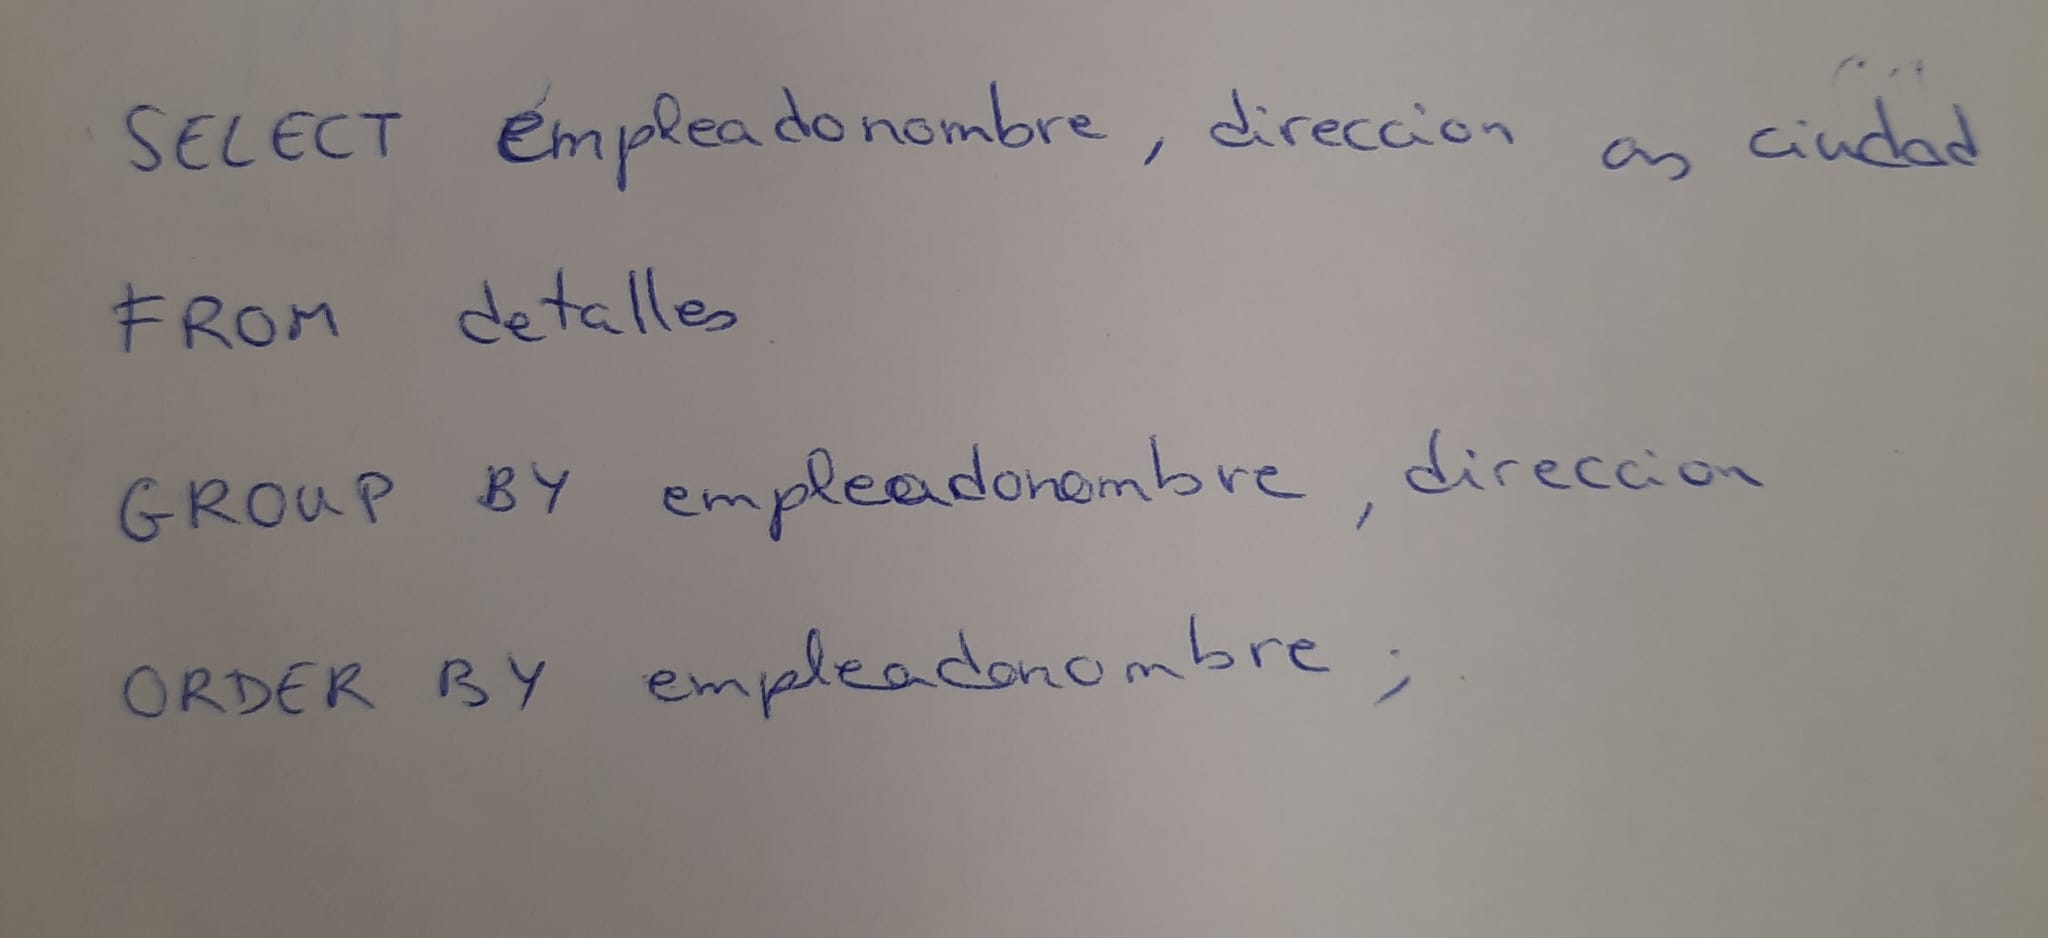 SELECT empleadonombre, direccion as ciudad
FROM detalles
GROUP BY empleadonombre, direccion
ORDER BY empleadonombre;